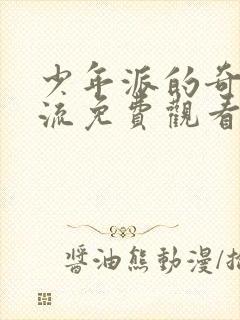 少年派的奇
流免費觀看
醬油熊動漫/